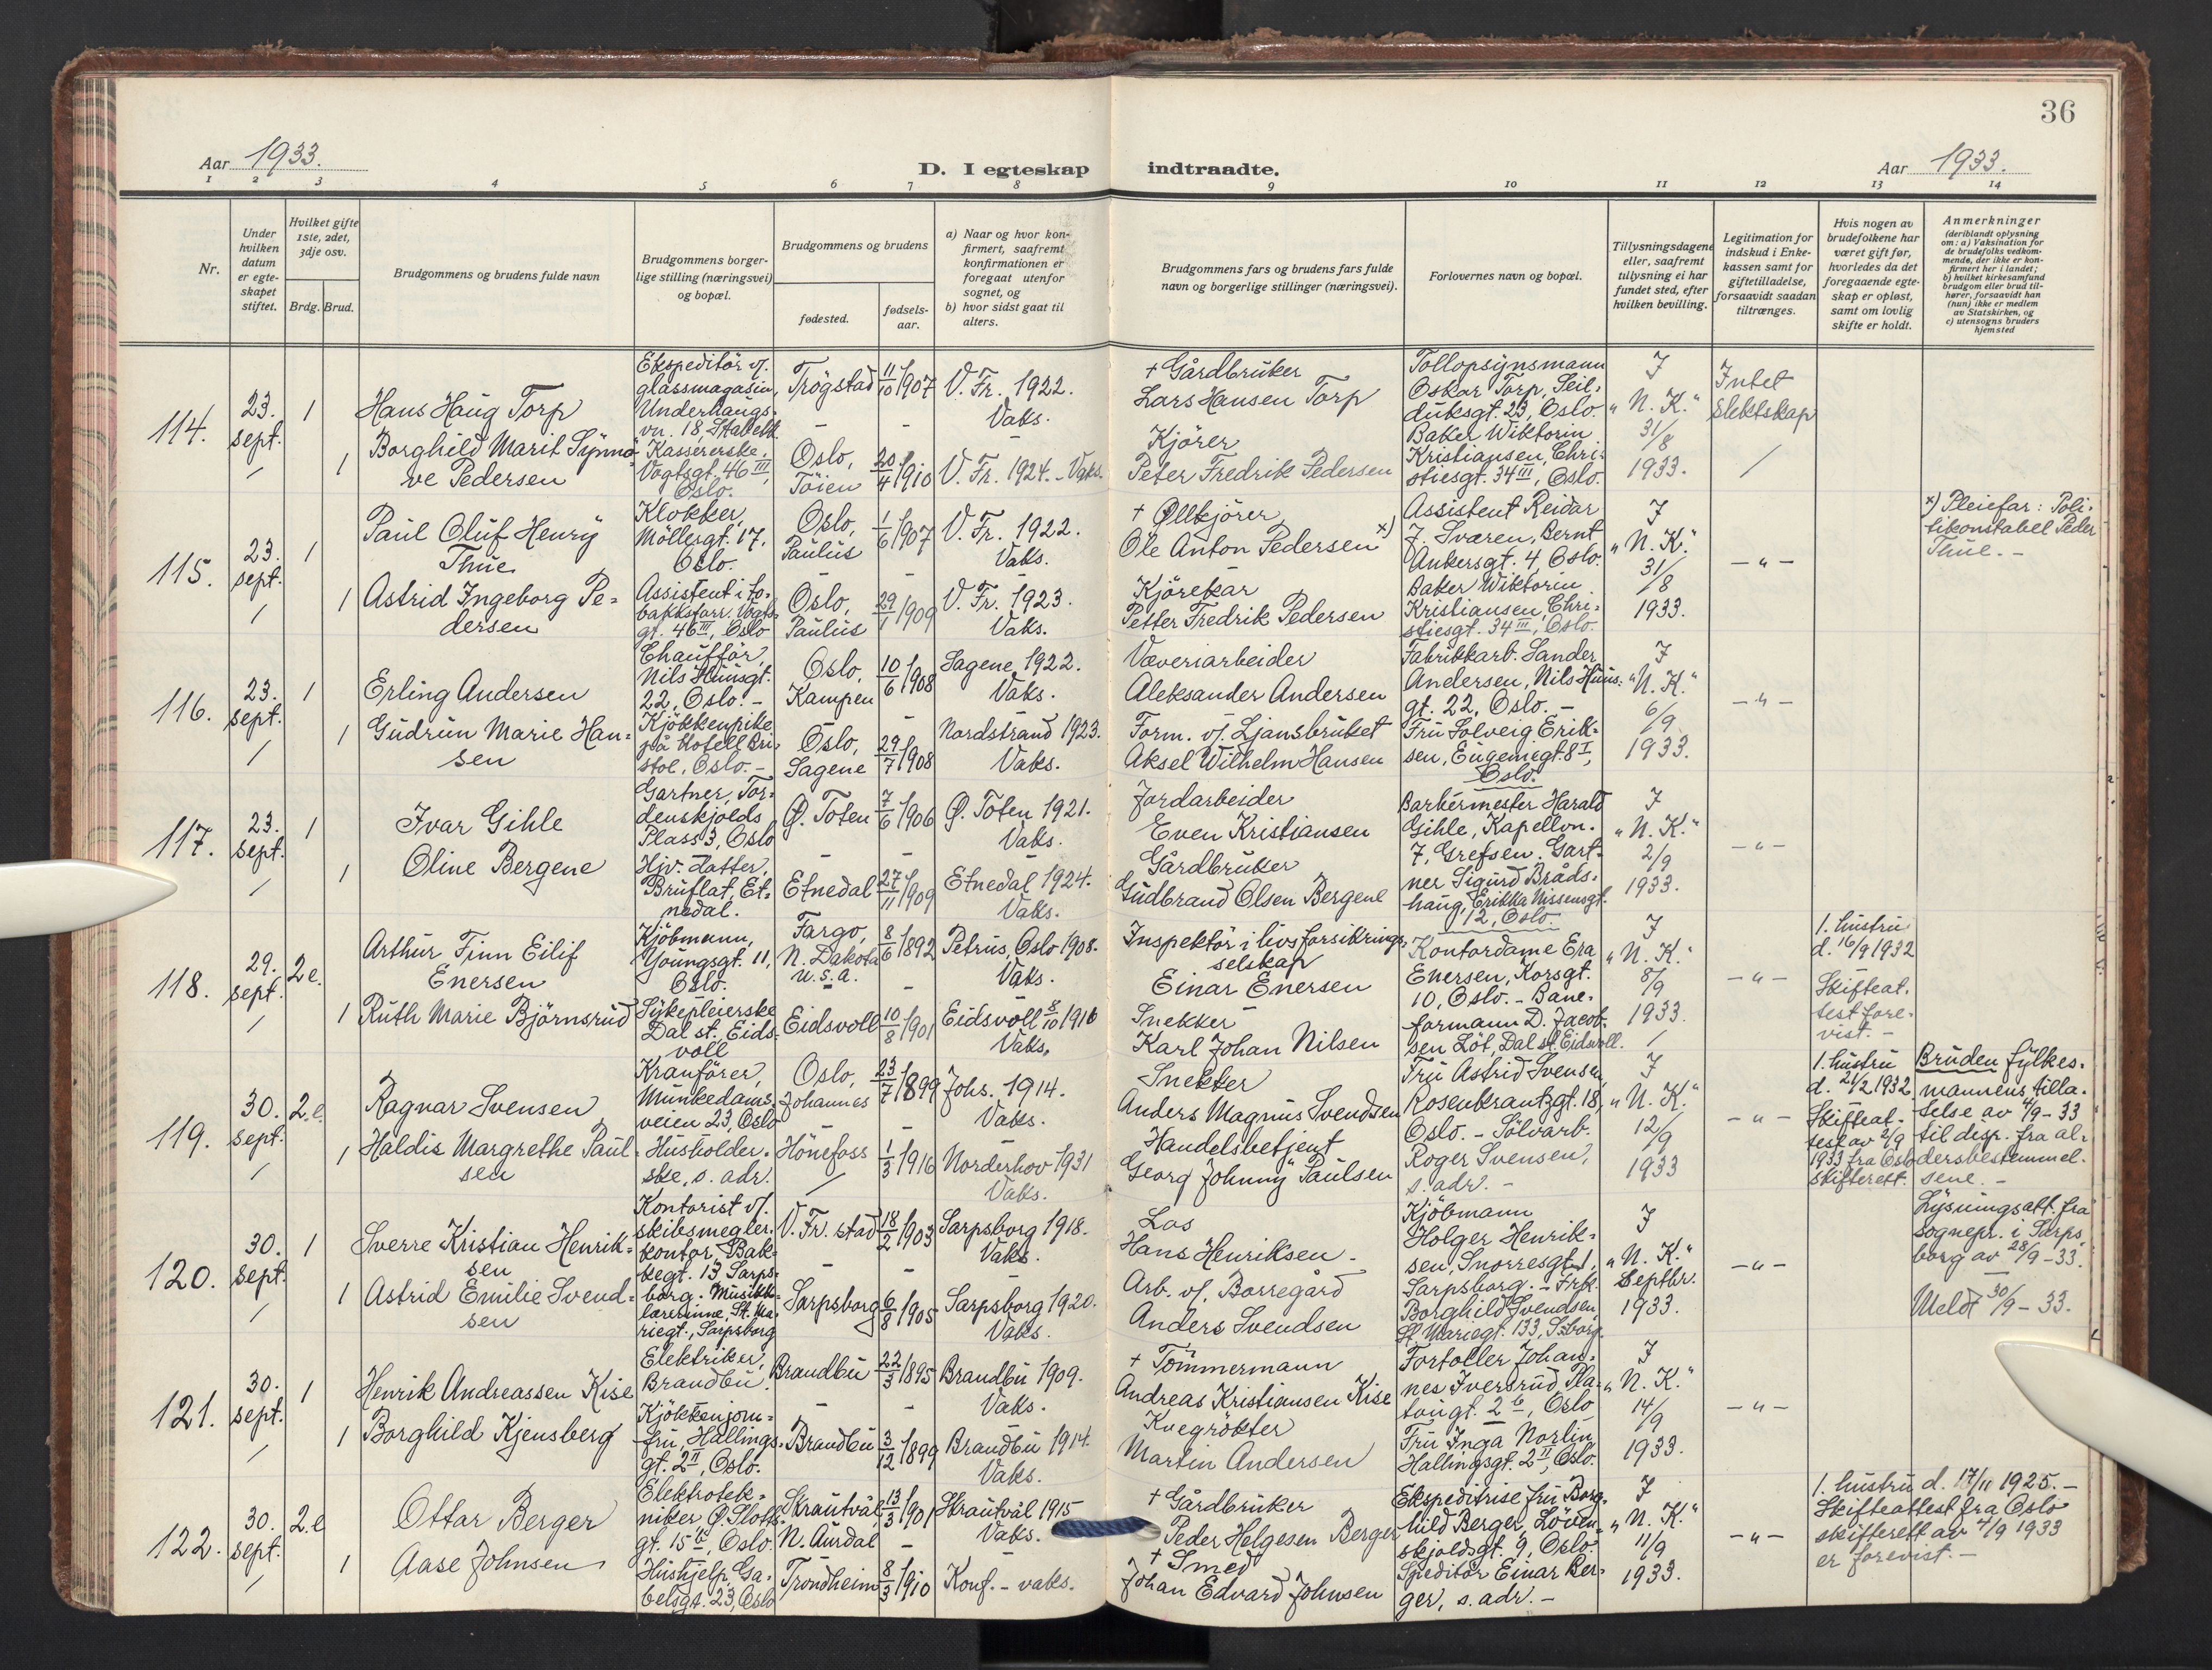 36
Aar 1933.
D. I egteskap indtraadte.
Aar 1933.
1 2 3 4 5 6 7 8 9 10 11 12 13 14
Nr.
Under hvilken datum er egteskapet stiftet.
Hvilket gifte 1ste, 2det, 3dje osv.
Brdg. Brud.
Brudgommens og brudens fulde navn
Brudgommens borgerlige stilling (næringsvei) og bopæl.
Brudgommens og brudens
fødested.
fødselsaar.
a) Naar og hvor konfirmert, saafremt konfirmationen er foregaat utenfor sognet, og
b) hvor sidst gaat til alters.
Brudgommens fars og brudens fars fulde navn og borgerlige stillinger (næringsvei).
Forlovernes navn og bopæl.
Tillysningsdagene eller, saafremt tillysning ei har fundet sted, efter hvilken bevilling.
Legitimation for indskud i Enkekassen samt for giftetilladelse, forsaavidt saadan tiltrænges.
Hvis nogen av brudefolkene har været gift før, hvorledes da det foregaaende egteskap er opløst, samt om lovlig skifte er holdt.
Anmerkninger
(deriblandt oplysning om: a) Vaksination for de brudefolks vedkommende, der ikke er konfirmert her i landet; b) hvilket kirkesamfund brudgom eller brud tilhører, forsaavidt han (hun) ikke er medlem av Statskirken, og c) utensogns bruders hjemsted
114.
23. sept.
1
Hans Haug Torp
Ekspeditör v/ glassmagasin, Underhaugsvn. 18, Stabekk
Trögstad
11/10 1907
V. Fr. 1922. Vaks.
+ Gårdbruker
Lars Hansen Torp
Tollopsynsmann Oskar Torp, Seilduksgt. 23, Oslo.
I "N. K." 31/8 1933.
Intet slektskap
1
Borghild Marit Synnöve Pedersen
Kassererske, Vogtsgt. 46 III, Oslo.
Oslo, Töien
20/4 1910
V. Fr. 1924. - Vaks.
Kjörer
Peter Fredrik Pedersen
Baker Wiktorin Kristiansen, Christiesgt. 34 III, Oslo.
115.
23. sept.
1
Paul Oluf Henry Thue
Klokker, Möllergt. 17. Oslo.
Oslo, Paulus
1/6 1907
V. Fr. 1922. Vaks.
+ Ölkjörer
Ole Anton Pedersen x)
Assistent Reidar J. Svaren, Bernt Ankersgt. 4, Oslo.
I "N. K." 31/8 1933.
- " -
x) Pleiefar: Politikonstabel Peder Thue. -
1
Astrid Ingeborg Pedersen
Assistent i tobakksforr. Vogtsgt. 46 III, Oslo
Oslo, Paulus
29/1 1909
V. Fr. 1923. Vaks.
Kjörekar
Petter Fredrik Pedersen
Baker Wiktorin Kristiansen, Christiesgt. 34 III, Oslo.
116.
23. sept.
1
Erling Andersen
Chaufför, Nils Huusgt. 22, Oslo. -
Oslo, Kampen
10/6 1908
Sagene 1922. Vaks.
Væveriarbeider
Aleksander Andersen
Fabrikkarb. Sander Andersen, Nils Huusgt. 22, Oslo. -
I "N. K." 6/9 1933.
- " -
1
Gudrun Marie Hansen
Kjökkenpike på Hotell Bristol, Oslo. -
Oslo, Sagene
29/7 1908
Nordstrand 1923. Vaks.
Form. v/ Ljansbruket
Aksel Wilhelm Hansen
Fru Solveig Eriksen, Eugeniegt. 8 I, Oslo.
117.
23. sept.
1
Ivar Gihle
Gartner, Tordenskjolds Plass 3, Oslo
Ø. Toten
7/6 1906
Ø. Toten 1921. Vaks.
Jordarbeider
Even Kristiansen
Barbérmester Harald Gihle, Kapellvn. 7, Grefsen.
I "N. K." 2/9 1933.
- " -
1
Oline Bergene
Hjv. datter, Bruflat, Etnedal.
Etnedal
27/11 1909
Etnedal 1924. Vaks.
Gårdbruker
Gudbrand Olsen Bergene
Gartner Sigurd Brådshaug, Erikka Nissensgt. 12, Oslo.
118.
29. sept.
2 e.
Arthur Finn Eilif Enersen
Kjöbmann, Youngsgt. 11, Oslo.
Fargo, N. Dakota U.S.A.
8/6 1892
Petrus, Oslo 1908. Vaks.
Inspektör i livsforsikringsselskap
Einar Enersen
Kontordame Era Enersen, Korsgt. 10, Oslo. -
I "N. K." 8/9 1933.
- " -
1. hustru d. 16/9 1932 Skifteattest forevist. -
1
Ruth Marie Björnsrud
Sykepleierske Dal st., Eidsvoll
Eidsvoll
10/8 1901
Eidsvoll 8/10 1916 Vaks.
Snekker
Karl Johan Nilsen
Baneformann D. Jacobsen Löt, Dal st. Eidsvoll.
119.
30. sept.
2. e.
Ragnar Svensen
Kranförer, Munkedamsveien 23, Oslo
Oslo, Johannes
23/7 1899
Johs. 1914. Vaks.
Snekker
Anders Magnus Svendsen
Fru Astrid Svensen, Rosenkrantzgt. 18, Oslo. -
I "N. K." 12/9 1933
- " -
1. hustru d. 21/2 1932 Skifteattest av 2/9 1933 fra Oslo skifterett.
Bruden fylkesmannens tillatelse av 4/9-33 til disp. fra aldersbestemmelsene. -
1
Haldis Margrethe Paulsen
Husholderske, s. adr.
Hönefoss
1/3 1916
Norderhov 1931 Vaks.
Handelsbetjent
Georg Johnny Paulsen
Sölvarb. Roger Svensen, s. adr. -
120.
30. sept.
1
Sverre Kristian Henriksen
Kontorist v/ skibsmeglerkontor, Bakkegt. 13 Sarpsborg.
V. Fr. stad
18/2 1903
Sarpsborg 1918. Vaks.
Los
Hans Henriksen -
Kjöbmann Holger Henriksen, Snorresgt. 1, Sarpsborg. -
I "N. K." Septbr. 1933.
- " -
Lysningsatt. fra sognepr. i Sarpsborg av 28/9-33.
Meldt 30/9-33.
1
Astrid Emilie Svendsen
Musikklærerinne, St. Mariegt., Sarpsborg
Sarpsborg
6/8 1905
Sarpsborg 1920. Vaks.
Arb. v/ Borregård
Anders Svendsen
Frk. Borghild Svendsen St. Mariegt. 133, S.borg.
121.
30. sept.
1
Henrik Andreassen Kise
Elektriker, Brandbu.
Brandbu
22/3 1895
Brandbu 1909. Vaks.
+ Tömmermann
Andreas Kristiansen Kise
Fortoller Johannes Iversrud Platougt. 2 b, Oslo
I "N. K." 14/9 1933.
- " -
1
Borghild Kjensberg
Kjökkenjomfru, Hallingsgt. 2 II, Oslo.
Brandbu
3/12 1899
Brandbu 1914. Vaks.
Kvegrökter
Martin Andersen
Fru Inga Norlin Hallingsgt. 2 II, Oslo.
122.
30. sept.
2. e
Ottar Berger
Elektrotekniker Ø. Slottsgt. 15, Oslo.
Skrautvål N. Aurdal
13/3 1901
Skrautvål 1915 Vaks.
+ Gårdbruker
Peder Helgesen Berger
Ekspeditrise fru Borghild Berger, Lövenskjoldsgt. 9, Oslo.
I "N. K." 11/9 1933.
- " -
1. hustru d. 17/11 1925. - Skifteattest fra Oslo skifterett av 4/9 1933 er forevist. -
1
Aase Johnsen
Hushjelp, Gabelsgt. 23, Oslo
Trondheim
8/3 1910
Konf. - vaks.
+ Smed
Johan Edvard Johnsen
Speditör Einar Berger, s. adr. -